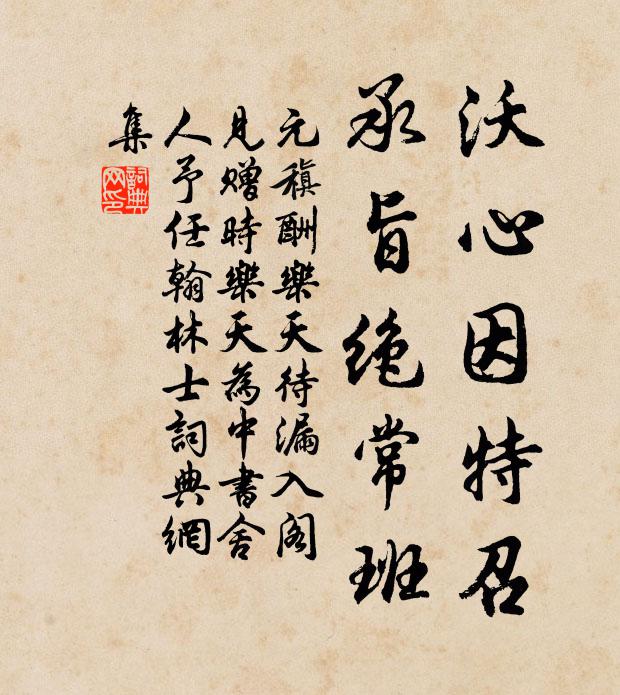 沃心因特召
承旨绝常班
元稹酬樂天待漏入阁
見贈時樂天為中書舍
人予任翰林士詞典網
集
詞典
网印